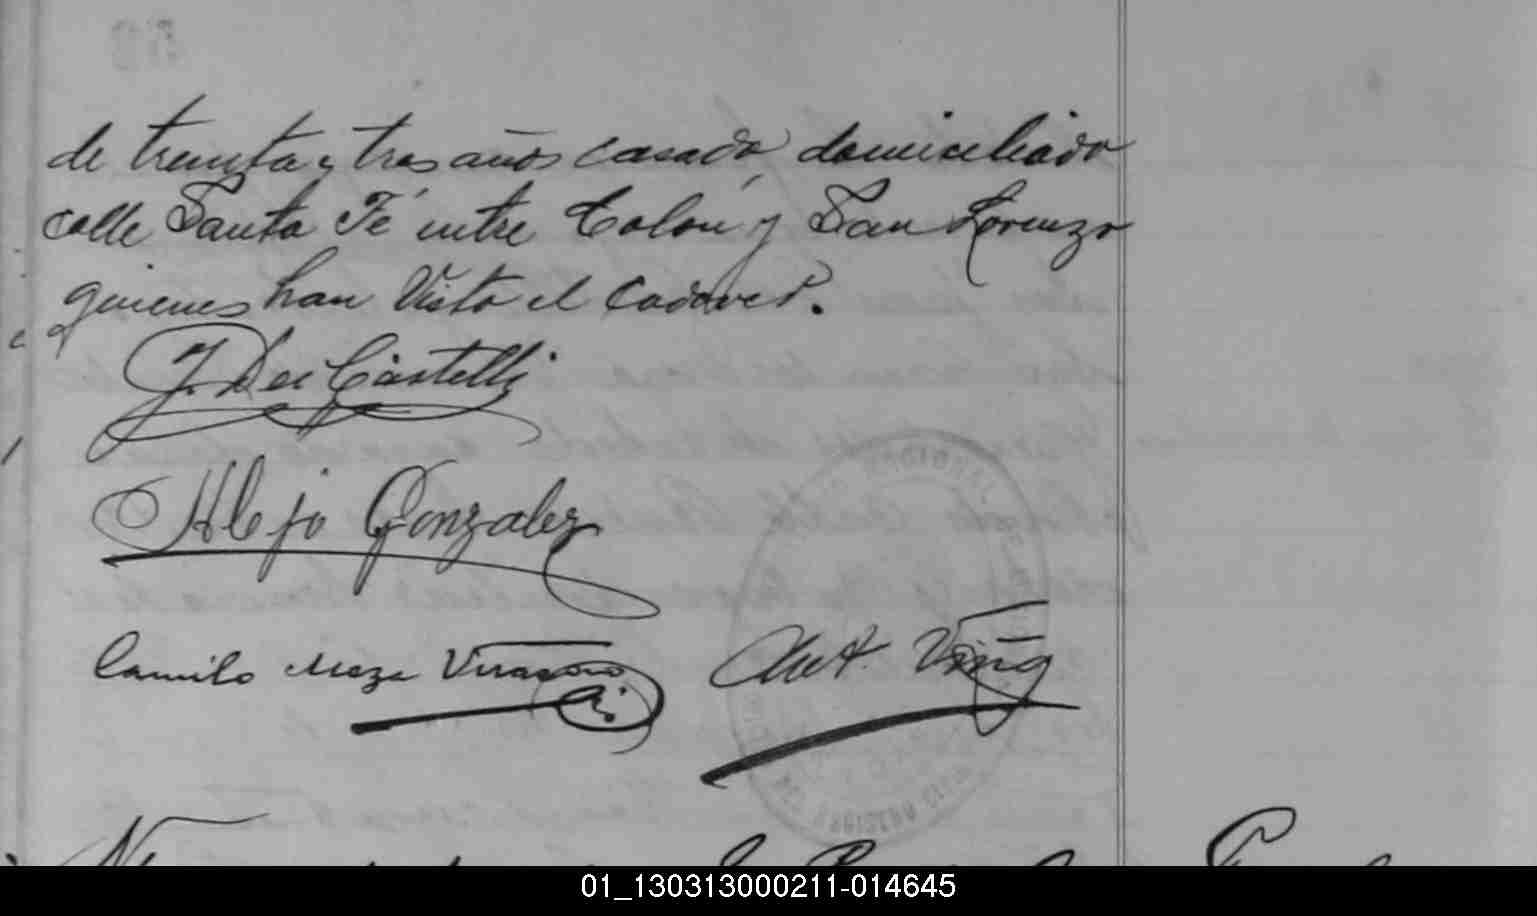 de treinta y tres años casado, domiciliado
calle Santa Fé entre Colón y San Lorenzo
quienes han visto el cadaver.
J. Del Castelli
Alejo Gonzalez
Camilo Meza Virasoro
Ant. Ving
01_130313000211-014645